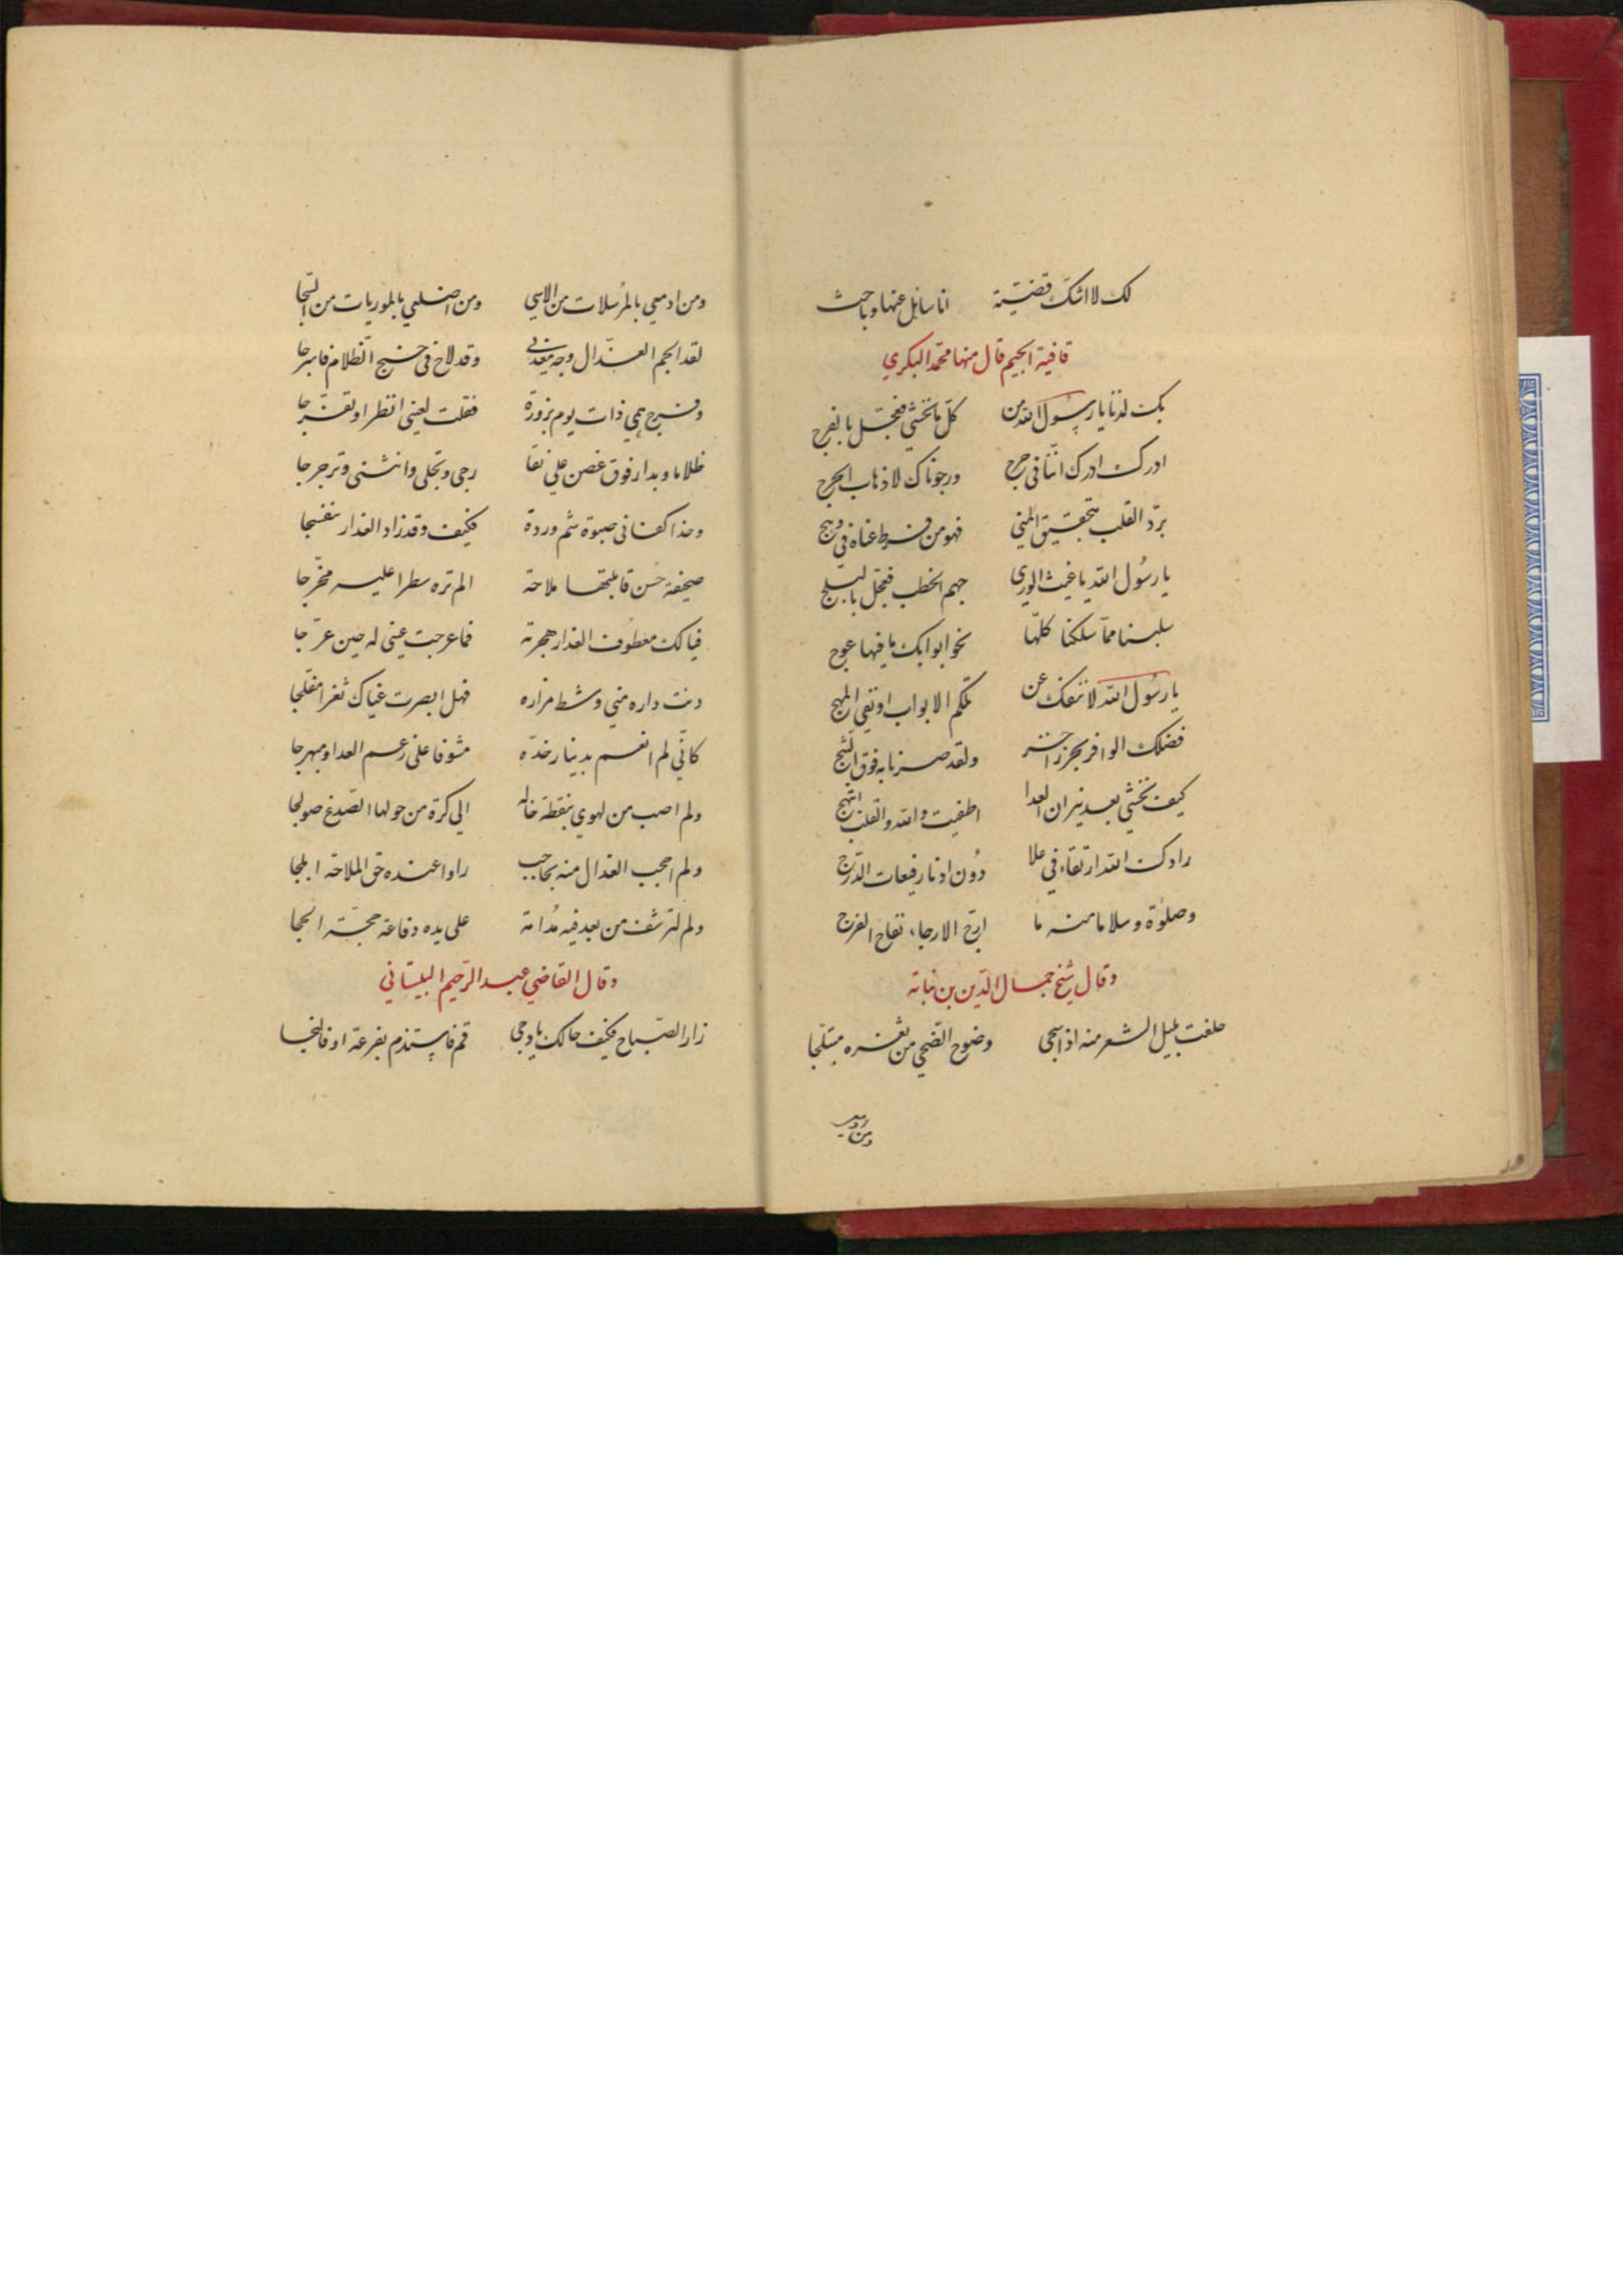 لك لا اشك قضيّة انا سايل عنها وباحث
قافية الجيم قال منها محمد البكري
بك لذنا يا رسول الله من كلّ ما نخشي فعجّل بالفرج
ادرك ادرك انّنا في حرج ورجوناك لاذهاب الحرج
برّد القلب بتحقيق المني فهو من فرط عناه في وهج
يا رسُول الله يا غيث الوري جهم الخطب فعجّل بالبلج
سلبنا ممّا سلكنا كلّها نحو ابوابك ما فيها عوج
يا رسُول الله لا ننفك عن تلكم الابواب او تفني المهج
فضلك الوافر بحر زاخر ولقد صرنا به فوق الثبج
كيف نخشي بعد نيران العدا اطفيت والله والقلب ابتهج
زادك الله ارتقاء في علا دُون ادنا رفيعات الدّرج
وصلوٰة وسلاما منه ما ارّج الارجاء نفاح الفرج
وقال شيخ جمال الدّين بن نباته
حلفت بليل الشعر منه اذا سجى وضوح الضّحي من ثغره متبلّجا
ومن
ومن ادمعي بالمرُسلات من الاسي ومن اضلعي بالموريات من الشجا
لقد الجم العذّال وجه معذبي وقد لاح في جنح الظلام فاسرجا
وفرج همي ذات يوم بزورة فقلت لعيني انظرا وتفرّجا
ظلاما وبدار فوق غصن علي نقا رجى وتجلى وانثنى وترجرجا
وخذا كفاني صبوة شم وردة فكيف وقد زاد العذار بنفسجا
صحيفة حُسن قابلتها ملاحة الم تره سطرا عليه مخرّجا
فيا لك معطوف العذار هجرته فما عرجت عيني له حين عرّجا
دنت داره مني وشط مزاره فهل ابصرت عيناك ثغرا مفلجا
كانّي لم انعم بدينار خدّه مشوفا على زعم العدا ومبهرجا
ولم اصب من لهوي بنقطة خاله الي كرة من حولها الصّدغ صولجا
ولم احجب العذال منه بحاجب راوا عنده حق الملاحة ابلجا
ولم لترشف من بعد فيه مُدامة على يده دفاعة حجّة الحجا
وقال القاضي عبد الرّحيم البيساني
زار الصّباح فكيف حالك يا دجي قم فاستذم بفرعه او فالنجا